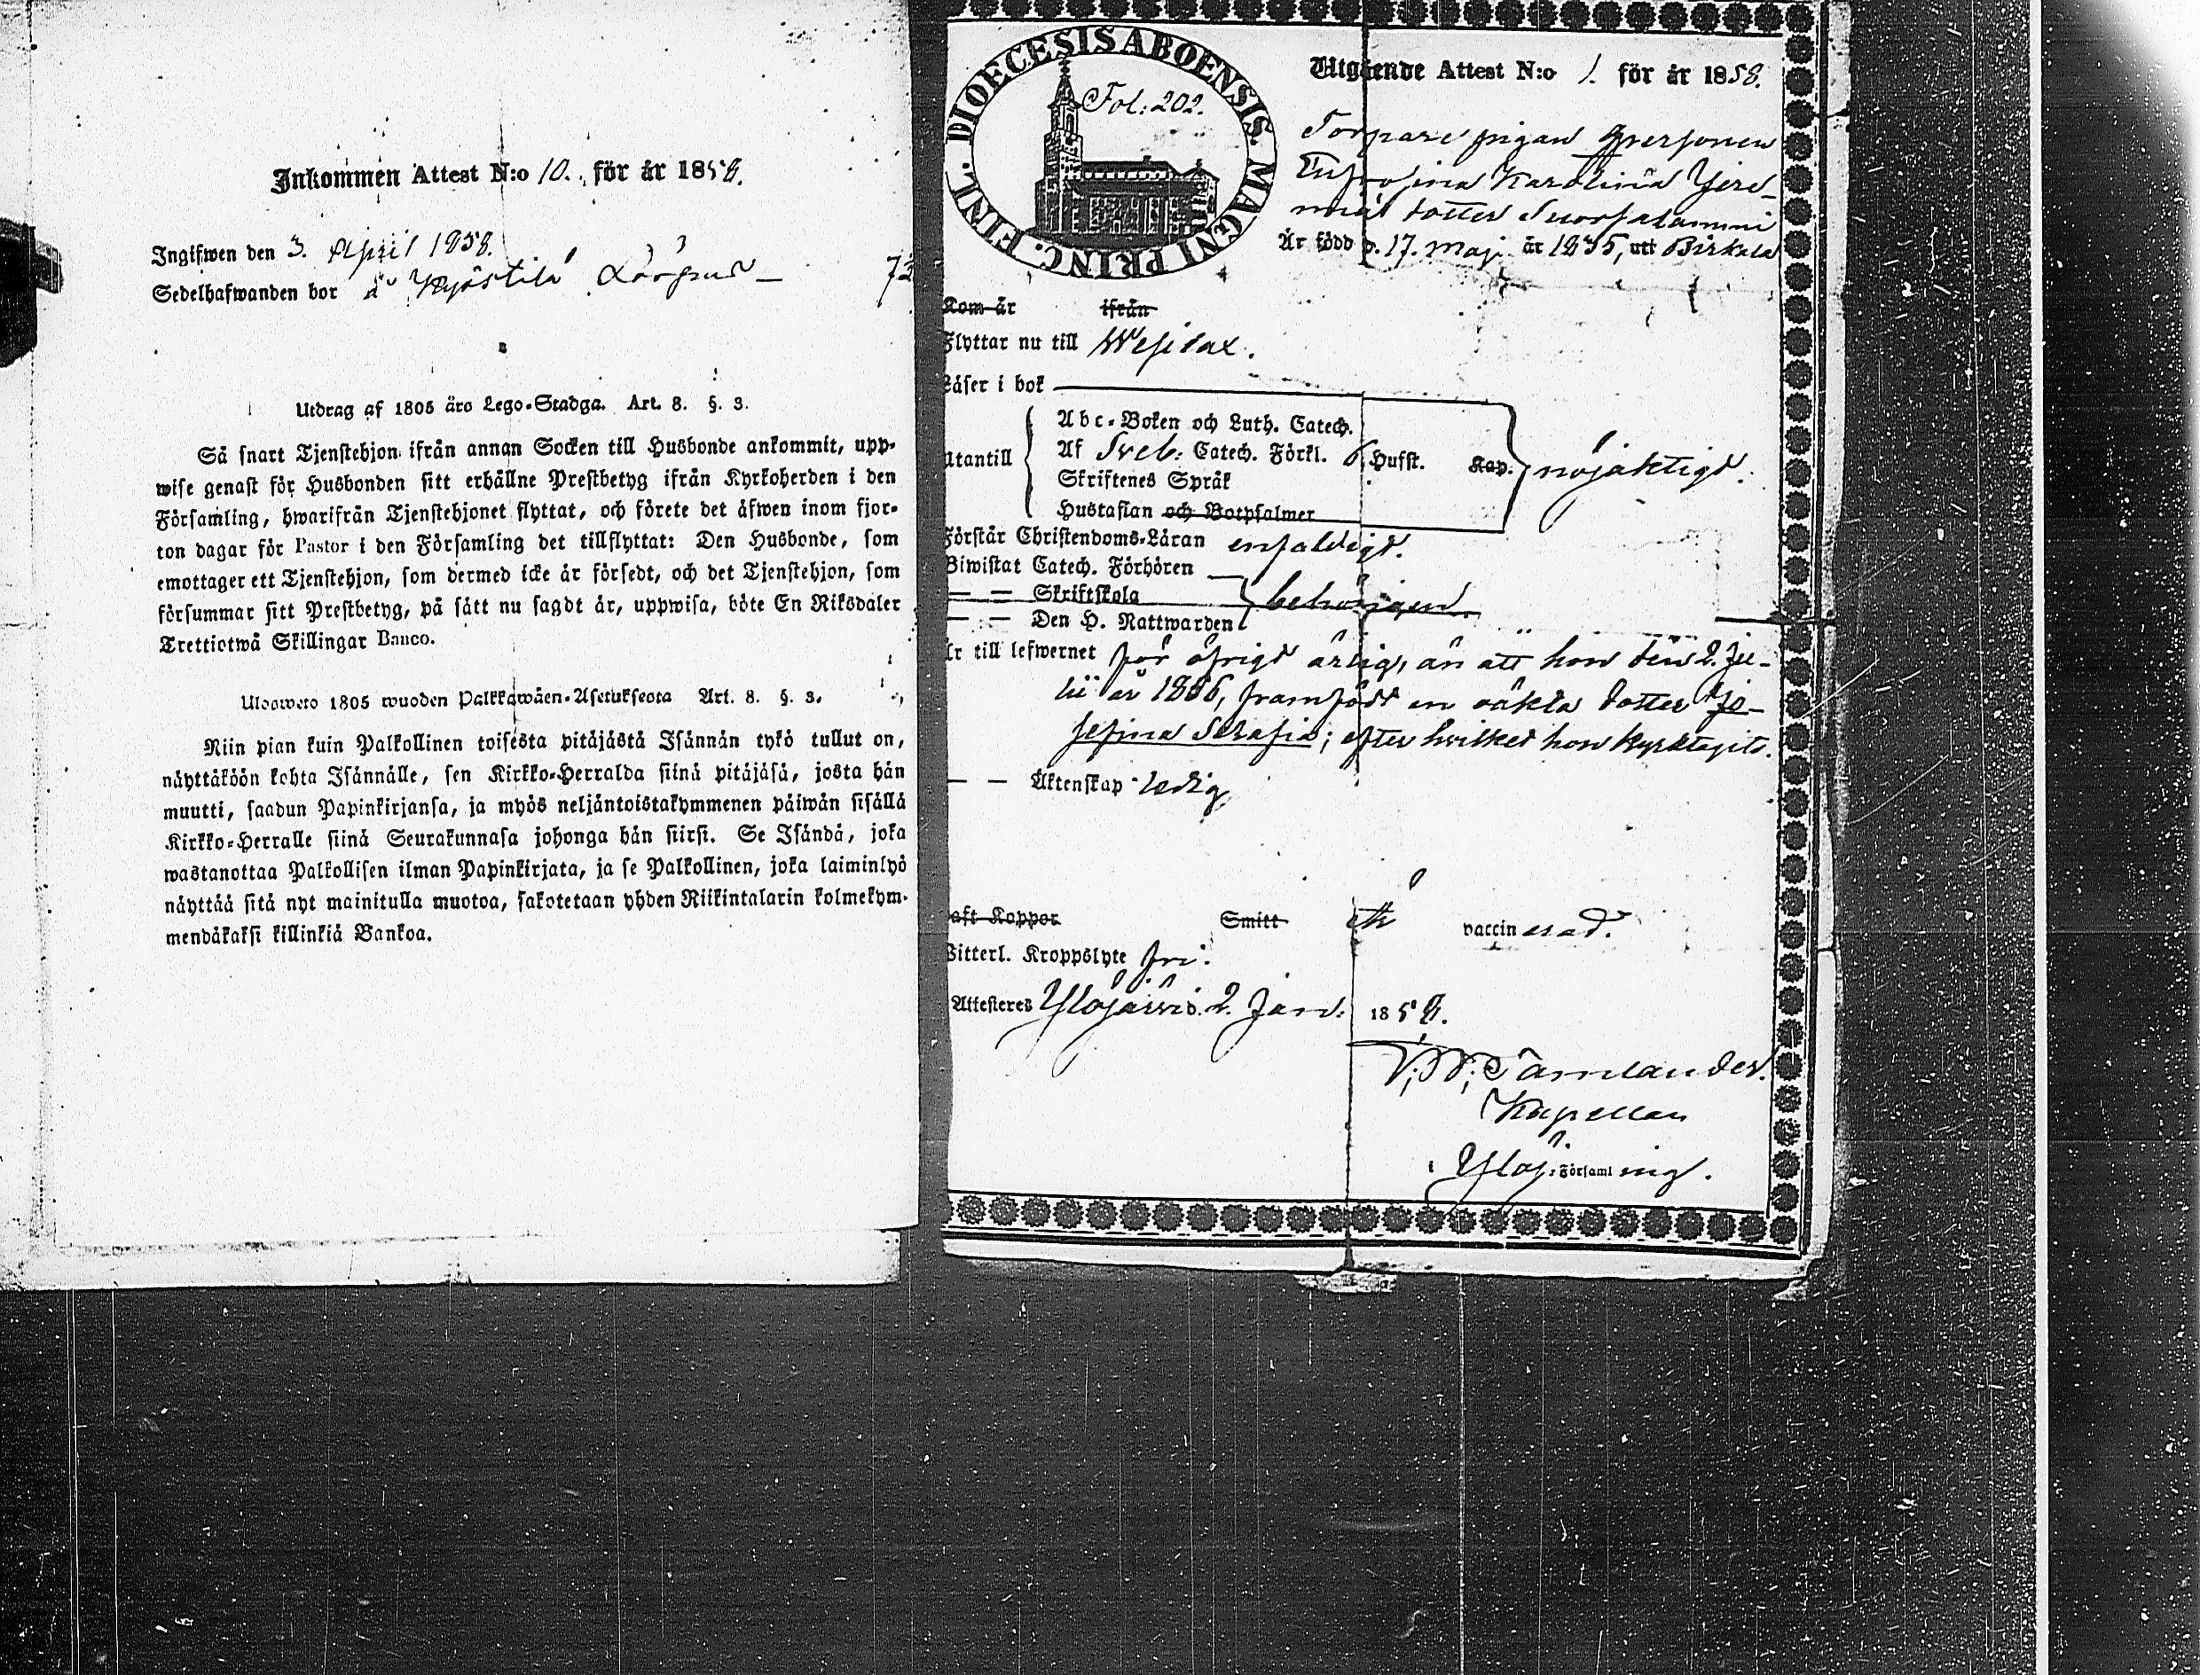 Inkommen Attest N:o 10. för år 1858.
Ingifwen den 3. April 1858.
Sedelhafwanden bor å Kyöstilä
Utdrag af 1805 års Lego-Stadga. Art. 8. §. 3.
Så snart Tjenstehjon ifrån annan Socken till Husbonde ankommit, upp-
wise genast för Husbonden sitt erhållne Prestbetyg ifrån Kyrkoherden i den
Församling, hwarifrån Tjenstehjonet flyttat, och förete det äfwen inom fjor-
ton dagar för Pastor i den Församling det tillflyttat: Den Husbonde, som
emottager ett Tjenstehjon, som dermed icke är försedt, och det Tjenstehjon, som
försummar sitt Prestbetyg, på sätt nu sagdt är, uppwisa, böte En Riksdaler
Trettiotwå Skillingar Banco.
Ulosweto 1805 wuoden Palkkawäen-Asetuksesta Art. 8. §. 3.
Niin pian kuin Palkollinen toisesta pitäjästä Isännän tykö tullut on,
näyttäköön kohta Isännälle, sen Kirkko-Herralda siinä pitäjäsä, josta hän
muutti, saadun Papinkirjansa, ja myös neljäntoistakymmenen päiwän sisällä
Kirkko-Herralle siinä Seurakunnasa johonga hän siirsi. Se Isändä, joka
wastanottaa Palkollisen ilman Papinkirjata, ja se Palkollinen, joka laiminlyö
näyttää sitä nyt mainitulla muotoa, sakotetaan yhden Riikintalarin kolmekym-
mendäkaksi killinkiä Bankoa.
DIOECESIS ABOENSIS MAGNI PRINC. FINL.
Fol: 202.
Utgående Attest N:o 1. för år 1858.
Torpare pigan Qpersonen
Eufrosina Karolina Jere-
mias dotter
Är född d. 17. Maj år 1835, uti Birkala
Kom år ifrån
Flyttar nu till Wesilax.
Läser i bok
Utantill
Abc-Boken och Luth. Catech.
Af Sveb: Catech. Förkl. 6 Hufst. Kap.
Skriftenes Språk
Hustaflan och Botpsalmer
nöjaktigt.
Förstår Christendoms-Läran enfaldigt.
Biwistat Catech. Förhören
— — Skriftskola
— — Den H. Nattwarden
behörigen
Är till lefwernet för öfrigt ärlig, än att hon den 2. Ju-
lii år 1856, framfödt en oäkta dotter Jo-
sefina Serafia; efter hvilket hon kyrktagits.
— — Äktenskap ledig
Haft Koppor Smitt vaccinerad.
Witterl. Kroppslyte fri.
Attesteres Ylöjärvi d. 2. Jan. 1858.
Tamlander.
Kapellan
i Ylöj. Församling.